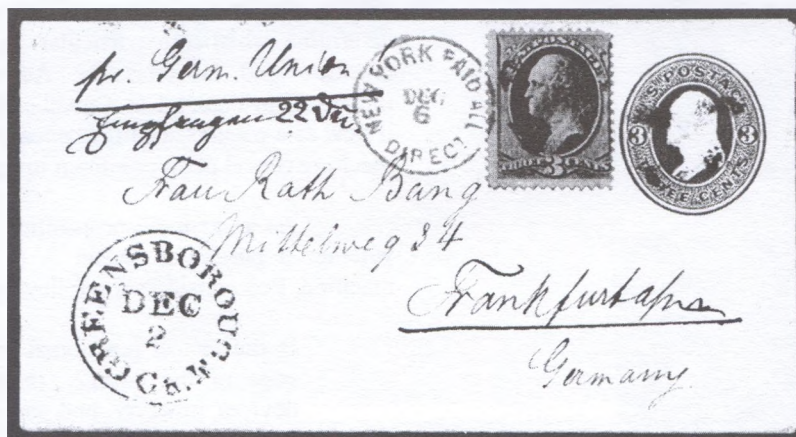 pr. Germ. Union
Empfangen 22 Dec.
NEW YORK PAID ALL
DEC
6
DIRECT
U.S. POSTAGE
THREE 3 CENTS
U.S. POSTAGE
3 3
THREE CENTS
Frau Rath Bang
Mittelweg 34
Frankfurt a/m
Germany.
GREENSBOROUGH
DEC
2
Ga.